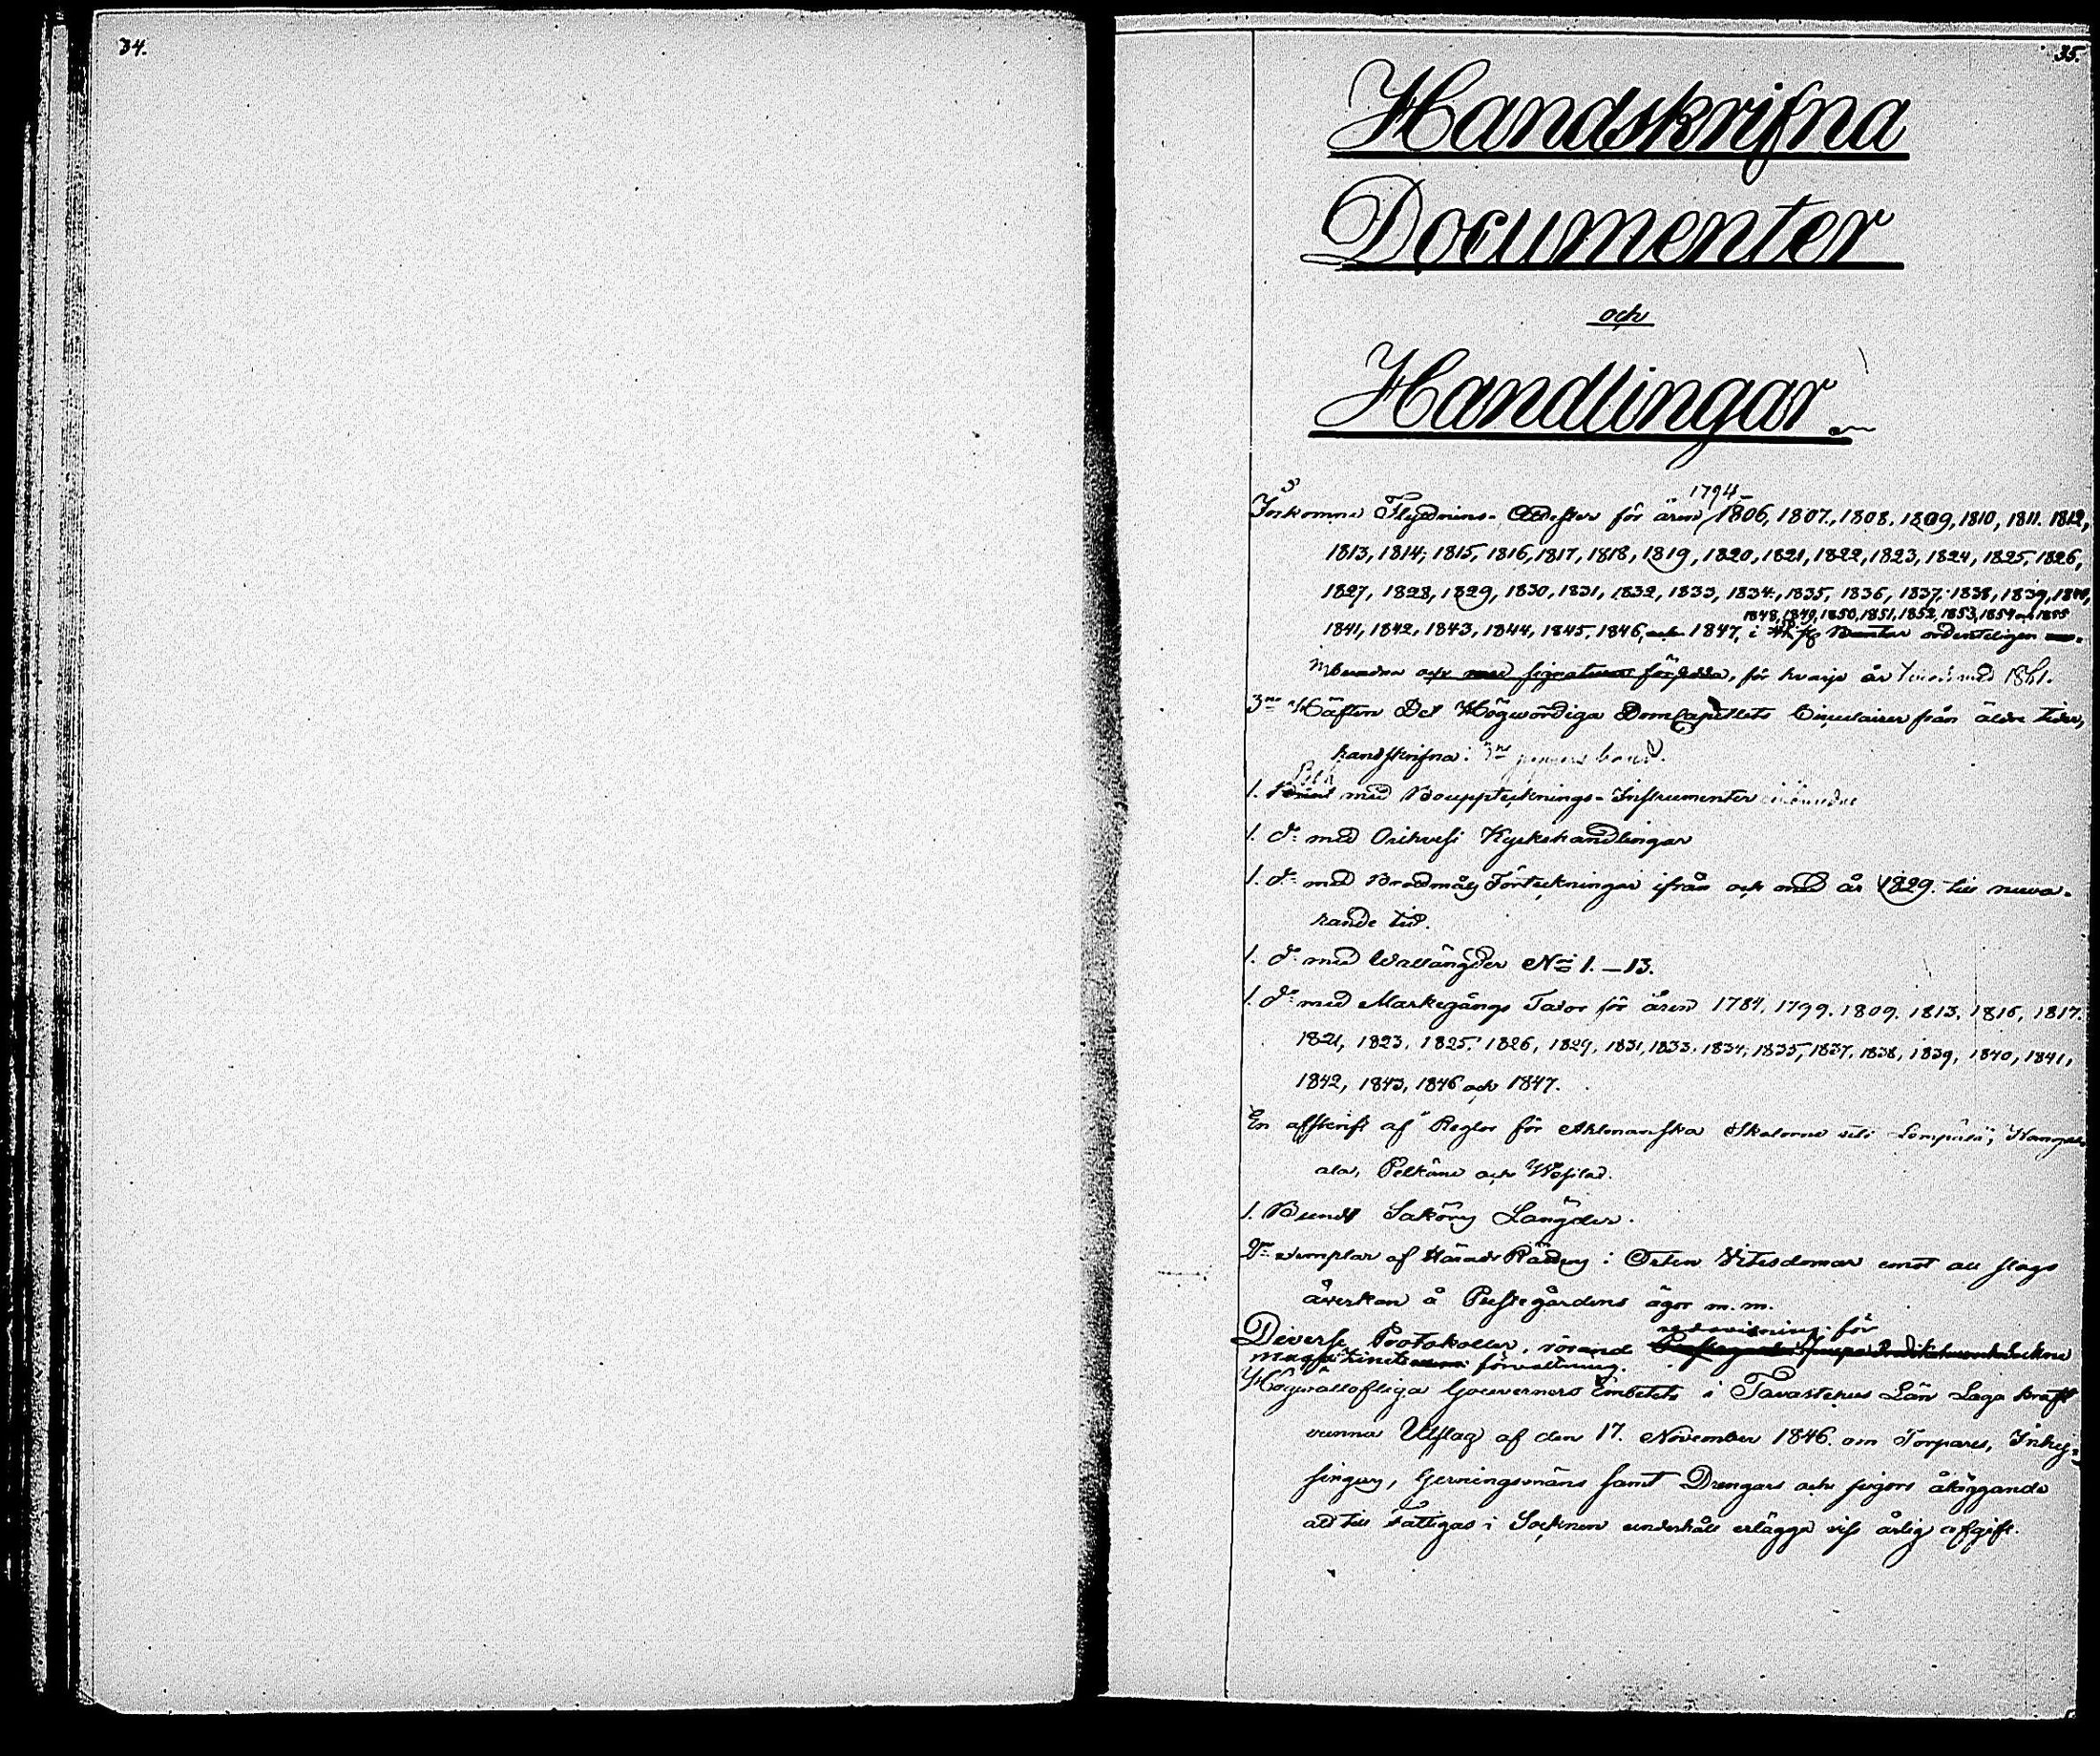 34.
35.
Handskrifna
Documenter
och
Handlingar.
1794-
Inkomne Flyttnings-Attester för åren 1806, 1807, 1808. 1809, 1810, 1811. 1812,
1813, 1814, 1815, 1816, 1817, 1818, 1819, 1820, 1821, 1822, 1823, 1824, 1825, 1826,
1827, 1828, 1829, 1830, 1831, 1832, 1833, 1834, 1835, 1836, 1837, 1838, 1839, 1840,
1848, 1849, 1850, 1851, 1852, 1853, 1854 och 1855
1841, 1842, 1843, 1844, 1845, 1846, och 1847, i Buntar ordenteligen
inbundna och med signaturer försedda, för hvarje år med 1861.
3ne Häften Det Högwördiga DomCapitlets Circulairer från äldre tider,
handskrifna: 3ne band.
1. Bundt med Bouppteknings-Instrumenter inbundne
1. do med Orihvesi Kyrkohandlingar
1. do med Brödmåls Förtekningar ifrån och med år 1829. till nuva-
rande tid.
1. do med Wallängder No 1. — 13.
1. do med Markegångs Taxor för åren 1784, 1799. 1809. 1813, 1816, 1817.
1821, 1823. 1825. 1826, 1829, 1831, 1833. 1834, 1835, 1837. 1838, 1839, 1840, 1841,
1842, 1843, 1846 och 1847.
En afskrift af Reglor för Ahlmanska Skolorne uti Lempälä, Kangas-
ala, Pelkäne och Wesilax.
1. Bundt Saköres Längder.
2ne exemplar af Härads Rättens i Orten Vitesdomar emot all slags
åverkan å Prestegårdens ägor m. m.
redovisning för
Diverse Protokoller, rörande
magasinets förvaltning.
Högvällofliga Gouverners Embetets i Tavastehus Län Laga kraft
vunna Utslag af den 17. November 1846. om Torpares, Inhy-
singars, Gerningsmäns samt Drengars och pigors åläggande
att till Fattigas i Socknen underhåll erlägga viss årlig afgift.